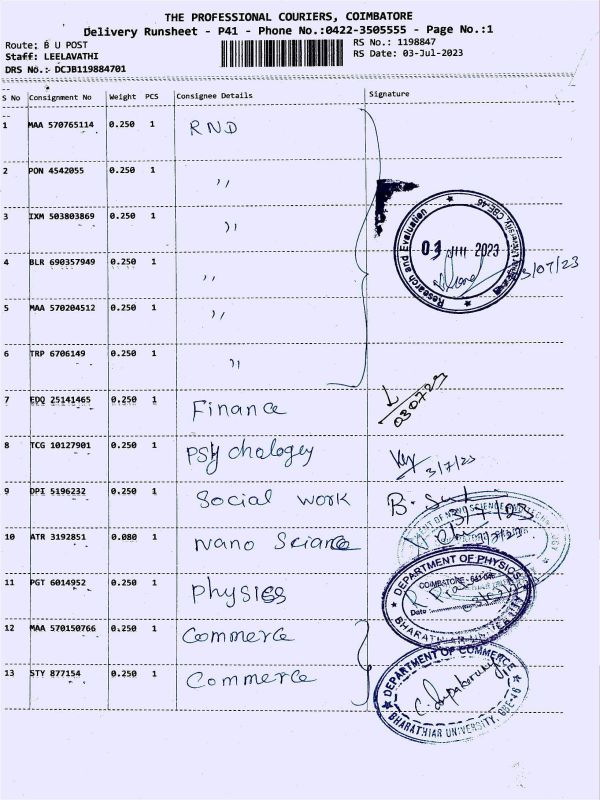 THE PROFESSIONAL COURIERS, COIMBATORE
Delivery Runsheet - P41 - Phone No.:0422-3505555 - Page No.:1
Route: B U POST
RS No.: 1198847
Staff: LEELAVATHI
RS Date: 03-Jul-2023
DRS No.: DCJB119884701
S No Consignment No Weight PCS Consignee Details Signature
1 MAA 570765114 0.250 1 RND
2 PON 4542055 0.250 1 ,,
3 IXM 503803869 0.250 1 ,,
4 BLR 690357949 0.250 1 ,,
5 MAA 570204512 0.250 1 ,,
6 TRP 6706149 0.250 1 ,,
Research and Evaluation
03 JUL 2023
3/07/23
7 EDQ 25141465 0.250 1 Finance 030723
8 TCG 10127901 0.250 1 PSY chology 3/7/23
9 DPI 5196232 0.250 1 Social work B.
3/7/23
10 ATR 3192851 0.080 1 Nano Science
11 PGT 6014952 0.250 1 Physics
DEPARTMENT OF PHYSICS
COIMBATORE - 641 046
Date
BHARATHIAR UNIVERSITY
12 MAA 570150766 0.250 1 Commerce
13 STY 877154 0.250 1 Commerce
DEPARTMENT OF COMMERCE
BHARATHIAR UNIVERSITY, CBE-46